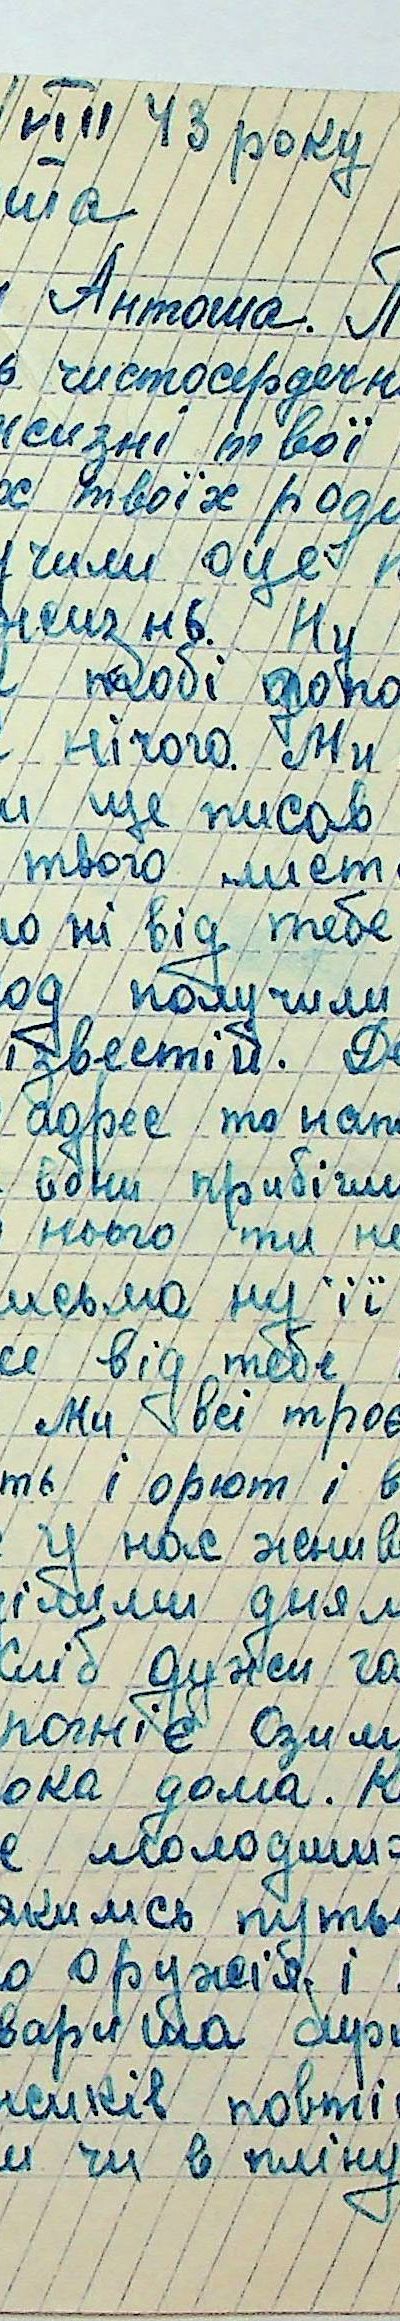 VIII 43 року
та
Антоша. П
ь чистосердечн
жизні твої
х твоїх роди
учили оце п
жизнь. Ну
тобі допо
нічого. Ми
и ще писав
твого лист
о ні від тебе
од получили
ізвестій. Де
адрес то нап
вони прибігли
нього ти не
исьма ну її
се від тебе
Ми всі троє
ть і орют і в
У нас жнив
цілими дням
Хліб дужи га
погніє Озим
ока дома. К
е молодших
якимсь путьо
о оружія, і
вариша
жиків повті
и чи в пліну